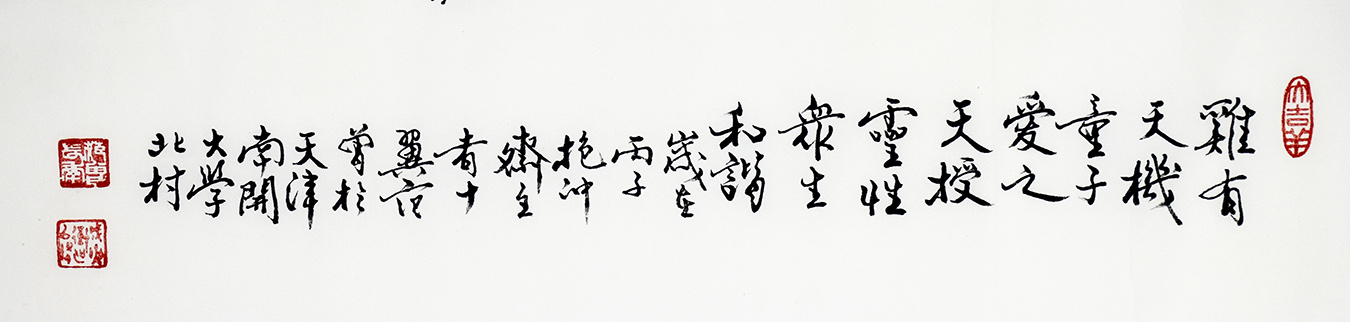 大吉羊
雞有
天機
童子
愛之
天授
靈性
眾生
和諧
歲在
丙子
抱冲
齋主
者十
翼范
曾於
天津
南開
大学
北村